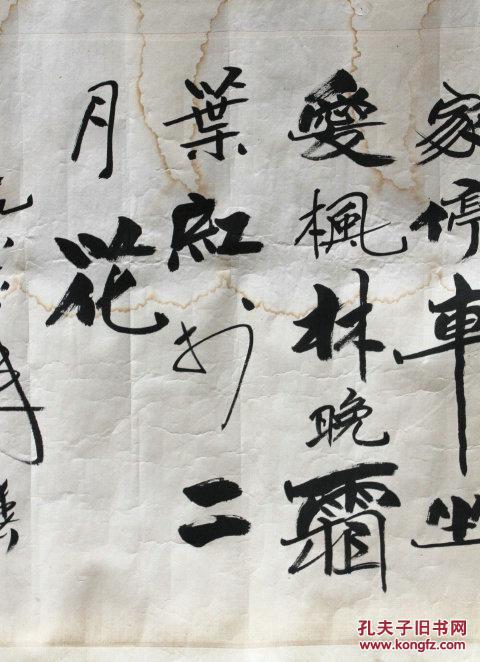 家停車坐
愛楓林晚霜
葉紅於二
月花
孔夫子旧书网
www.kongfz.com